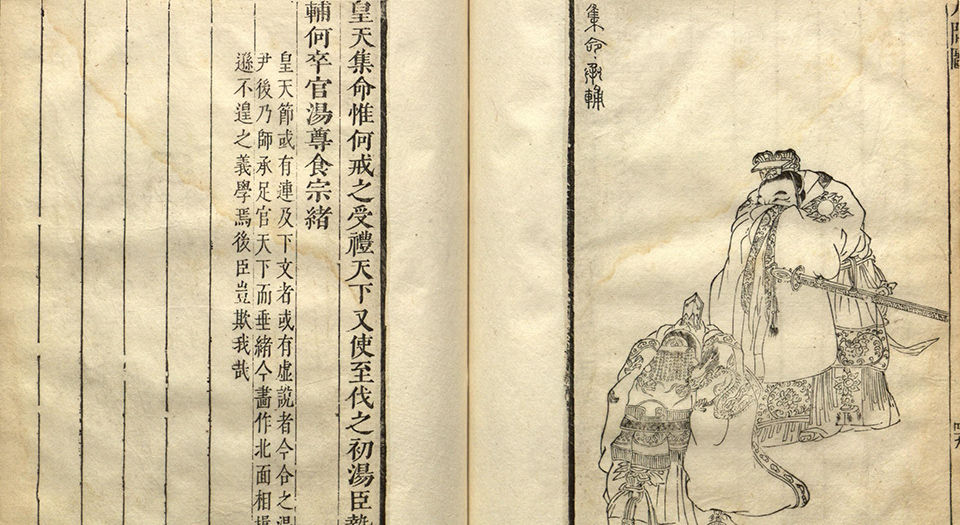 集命承輔
皇天集命惟何戒之受禮天下又使至代之初湯臣
輔何卒官湯尊食宗緒
皇天節或有連及下文者或有虛說者今合之湯
尹後乃師承足官天下而垂緒今畫作北面相
遜不遑之義學焉後臣豈欺我哉